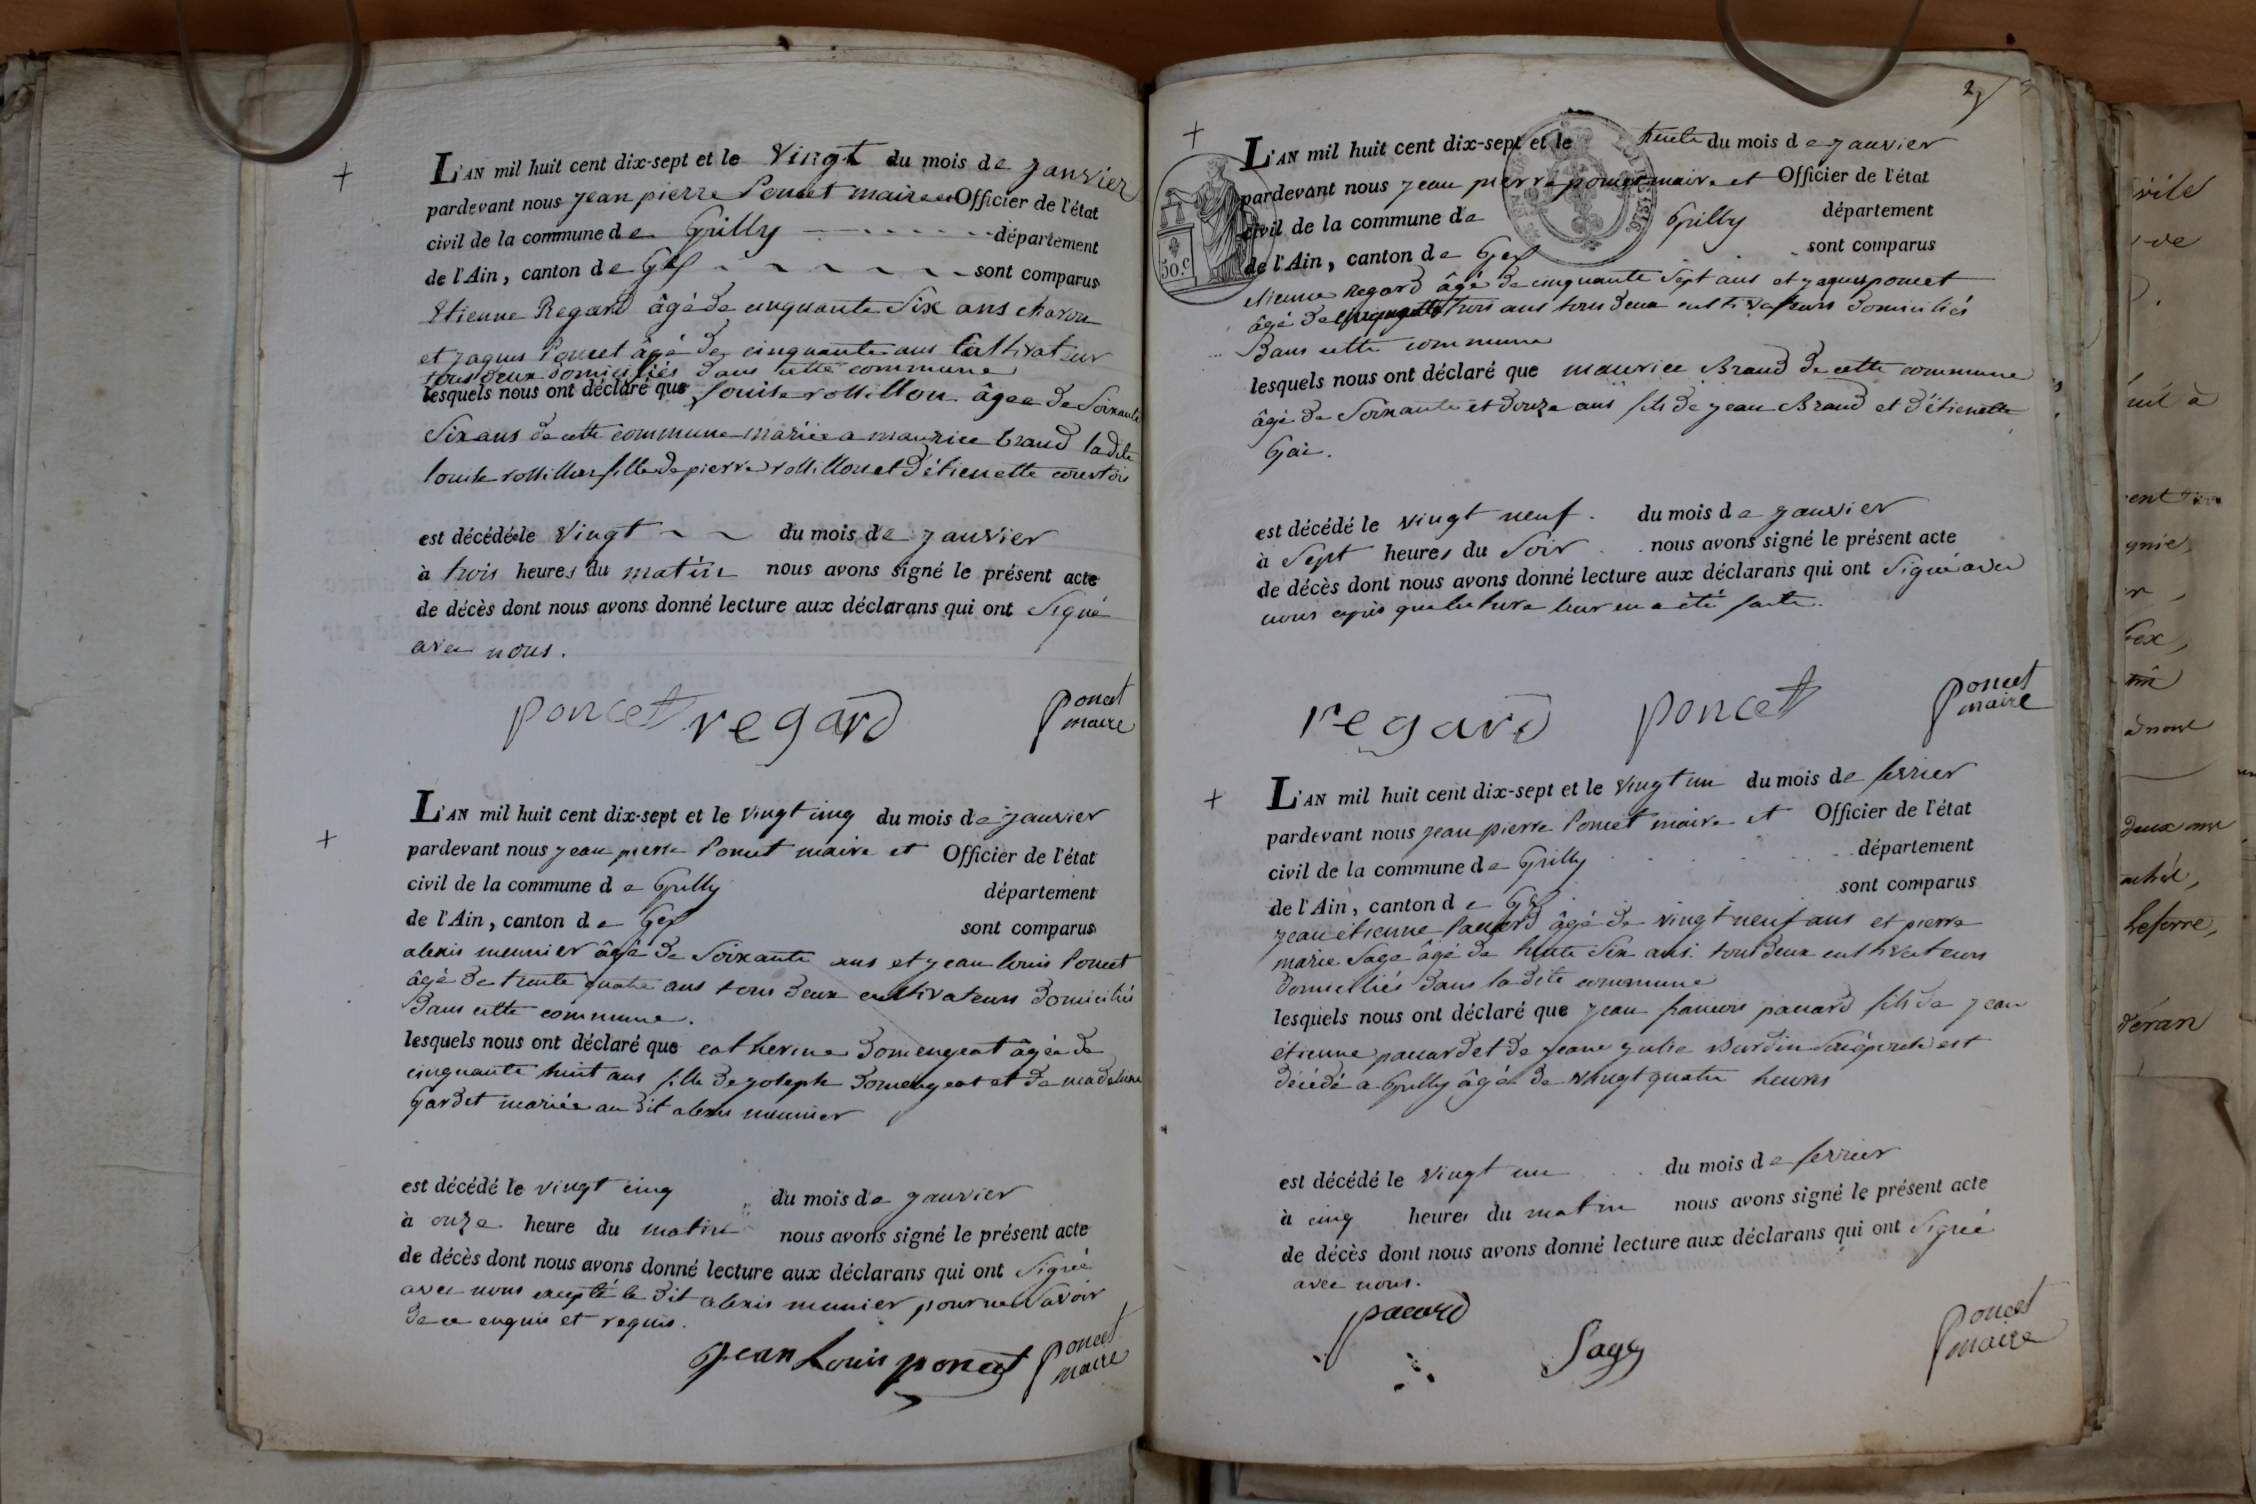 L'AN mil huit cent dix-sept et le vingt du mois de janvier
pardevant nous jean pierre Poncet maire et Officier de l'état
civil de la commune de Grilly département
de l'Ain, canton de Gex sont comparus
Etienne Regard âgé de cinquante six ans charon
et jaques Poncet âgé de cinquante ans Cultivateur
tous deux domiciliés dans cette commune
lesquels nous ont déclaré que louise rossillon âgée de soixante
six ans de cette commune mariée a maurice braud la dite
louise rossillon fille de pierre rossillon et d'étienette courtois
est décédée le vingt du mois de janvier
à trois heures du matin nous avons signé le présent acte
de décès dont nous avons donné lecture aux déclarans qui ont signé
avec nous.
poncet regard Poncet
maire
L'AN mil huit cent dix-sept et le vingt cinq du mois de janvier
pardevant nous jean pierre Poncet maire et Officier de l'état
civil de la commune de Grilly département
de l'Ain, canton de Gex sont comparus
alexis meunier âgé de soixante ans et jean louis Poncet
âgé de trente quatre ans tous deux cultivateurs domiciliés
dans cette commune.
lesquels nous ont déclaré que catherine domengeat âgée de
cinquante huit ans fille de joseph domengeat et de madelaine
gardet mariée au dit alexis meunier
est décédé le vingt cinq du mois de janvier
à onze heure du matin nous avons signé le présent acte
de décès dont nous avons donné lecture aux déclarans qui ont signé
avec nous excepté le dit alexis meunier pour ne savoir
de ce enquis et requis.
jean Louis poncet Poncet
maire
2
L'AN mil huit cent dix-sept et le trente du mois de janvier
pardevant nous jean pierre poncet maire et Officier de l'état
civil de la commune de Grilly département
de l'Ain, canton de Gex sont comparus
50.c
etienne Regard âgé de cinquante sept ans et jaques poncet
âgé de cinquante trois ans tous deux cultivateurs domiciliés
dans cette commune
lesquels nous ont déclaré que maurice Braud de cette commune
âgé de soixante et douze ans fils de jean Braud et d'étienette
Gai.
est décédé le vingt neuf. du mois de janvier
à sept heures du soir nous avons signé le présent acte
de décès dont nous avons donné lecture aux déclarans qui ont signé avec
nous après que lecture leur en a été faite.
regard poncet Poncet
maire
L'AN mil huit cent dix-sept et le vingt un du mois de fevrier
pardevant nous jean pierre Poncet maire et Officier de l'état
civil de la commune de Grilly département
de l'Ain, canton de Gex sont comparus
jean étienne Pacard âgé de vingt neuf ans et pierre
marie Sage âgé de trente six ans tous deux cultivateurs
domiciliés dans la dite commune
lesquels nous ont déclaré que jean francois pacard fils de jean
étienne pacard et de jeane julie Burdin est
décédé a Grilly âgé de vingt quatre heures
est décédé le vingt un du mois de fevrier
à cinq heures du matin nous avons signé le présent acte
de décès dont nous avons donné lecture aux déclarans qui ont signé
avec nous.
pacard Sage Poncet
maire